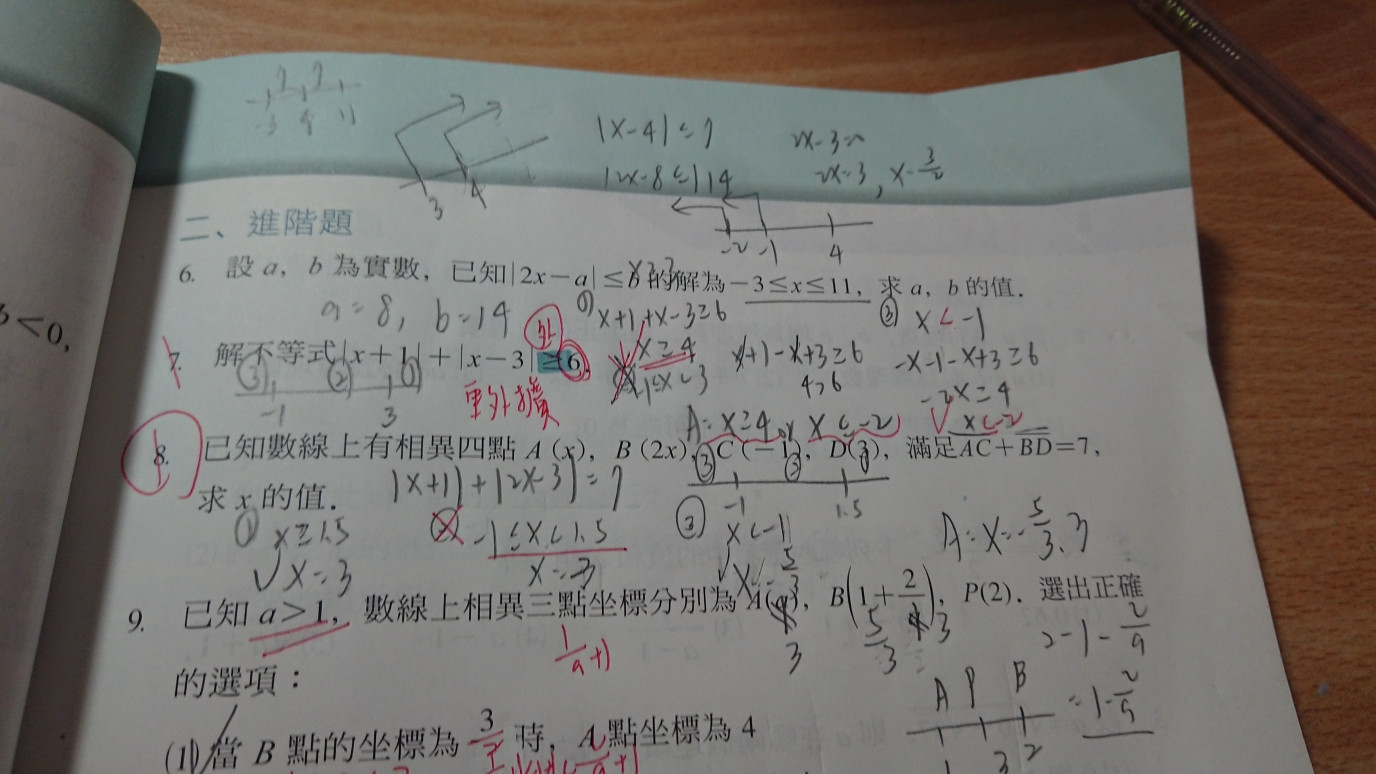 -3 4 11
3 4
|x-4|≤7
|2x-8|≤14
2x-3=
2x=3, x=3/2
-2 -1 4
二、進階題
6. 設 a, b 為實數, 已知|2x-a|≤b 的解為-3≤x≤11, 求 a, b 的值.
a=8, b=14
① x+1+x-3≥6
③ x<-1
7. 解不等式|x+1|+|x-3|≥6.
外
x≥4
x+1-x+3≥6
-x-1-x+3≥6
4≥6
-2x≥4
③ ② ①
-1 3
往外擴
-1≤x<3
x≤-2
A: x≥4 or x≤-2
8. 已知數線上有相異四點 A(x), B(2x), C(-1), D(3), 滿足AC+BD=7,
求 x 的值.
|x+1|+|2x-3|=7
③ ② ①
-1 1.5
① x≥1.5
② -1≤x<1.5
③ x<-1
A: x=-5/3, 3
x=3
x=-3
x=-5/3
9. 已知 a>1, 數線上相異三點坐標分別為 A(a), B(1+2/a), P(2). 選出正確
3
5/3
2-1-2/a
1/a+1
的選項:
A P B
=1-2/a
(1) 當 B 點的坐標為 3/2 時, A 點坐標為 4